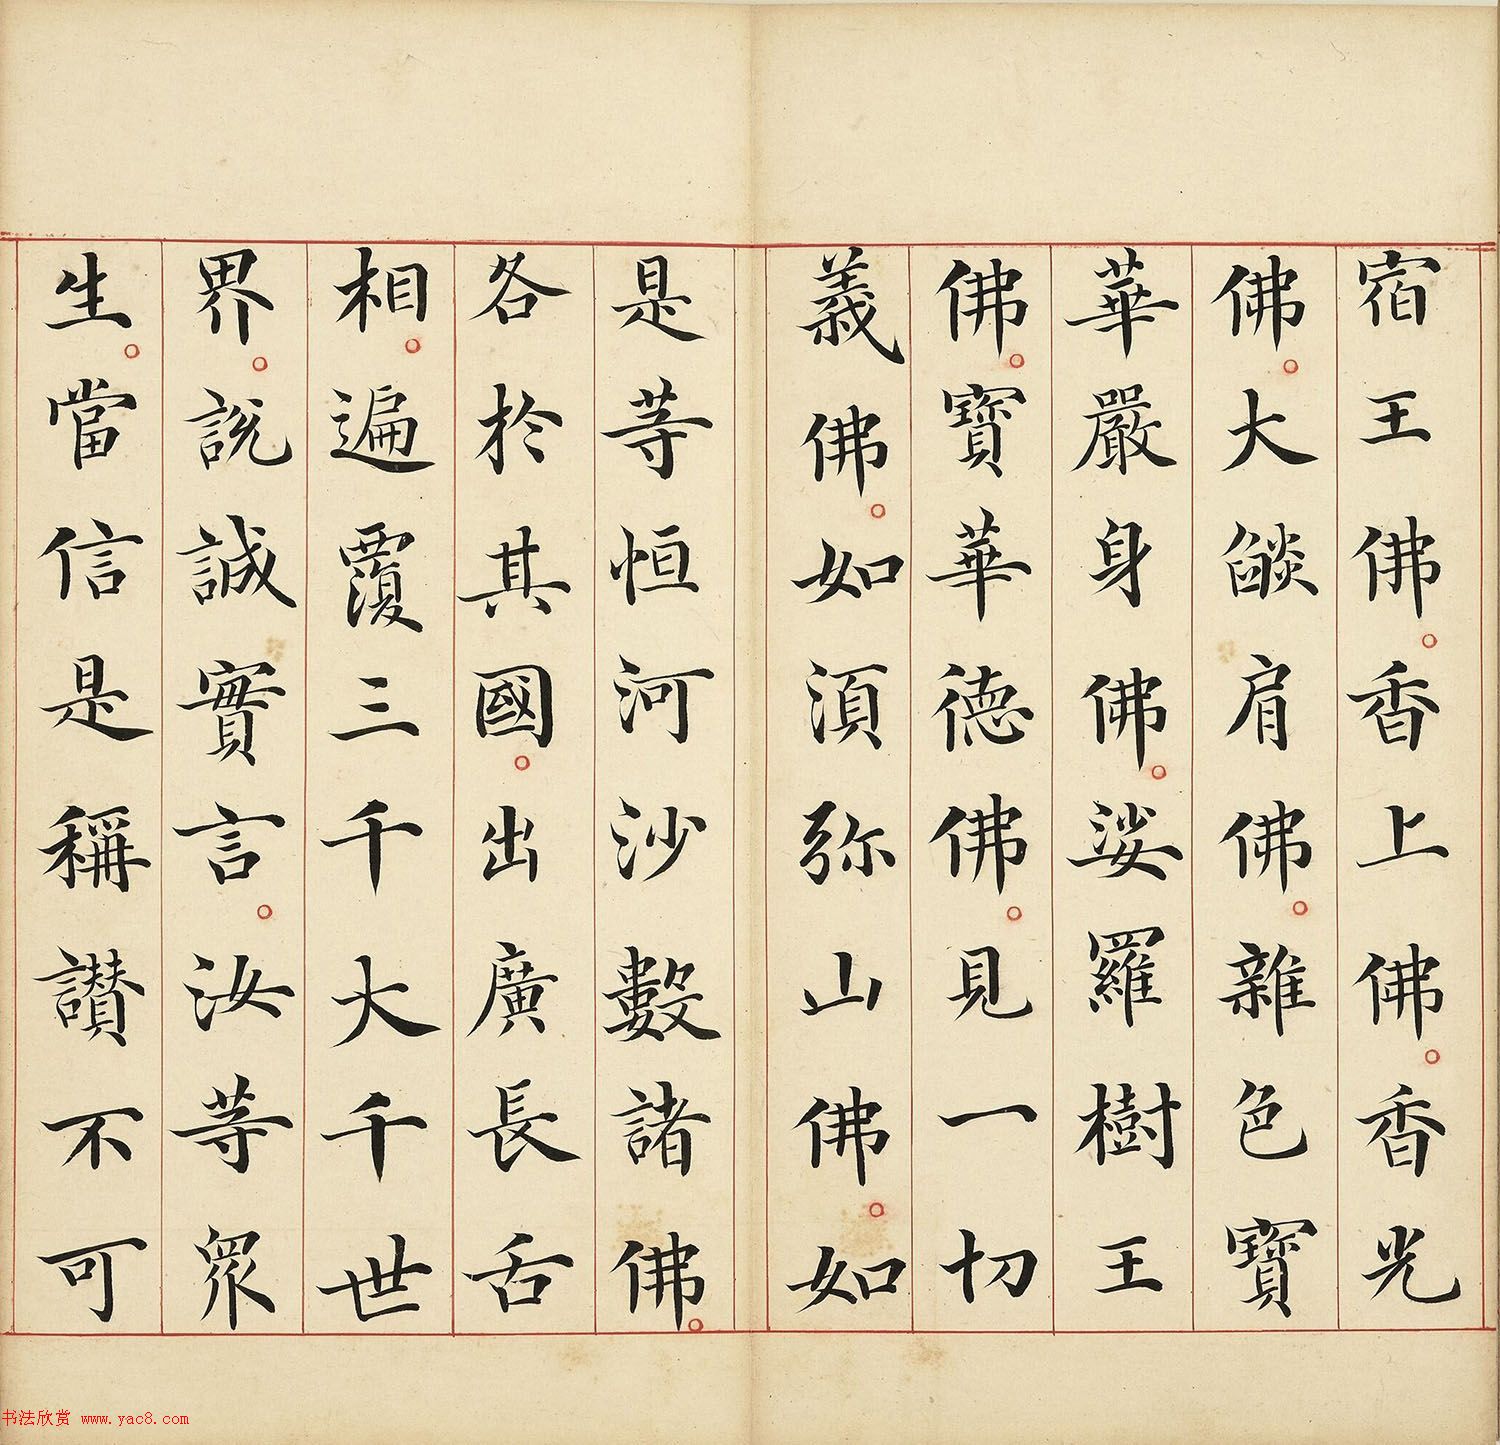 宿王佛。香上佛。香光
佛。大燄肩佛。雜色寶
華嚴身佛。娑羅樹王
佛。寶華德佛。見一切
義佛。如須弥山佛。如
是等恒河沙數諸佛。
各於其國。出廣長舌
相。遍覆三千大千世
界。說誠實言。汝等眾
生。當信是稱讃不可
书法欣赏 www.yac8.com